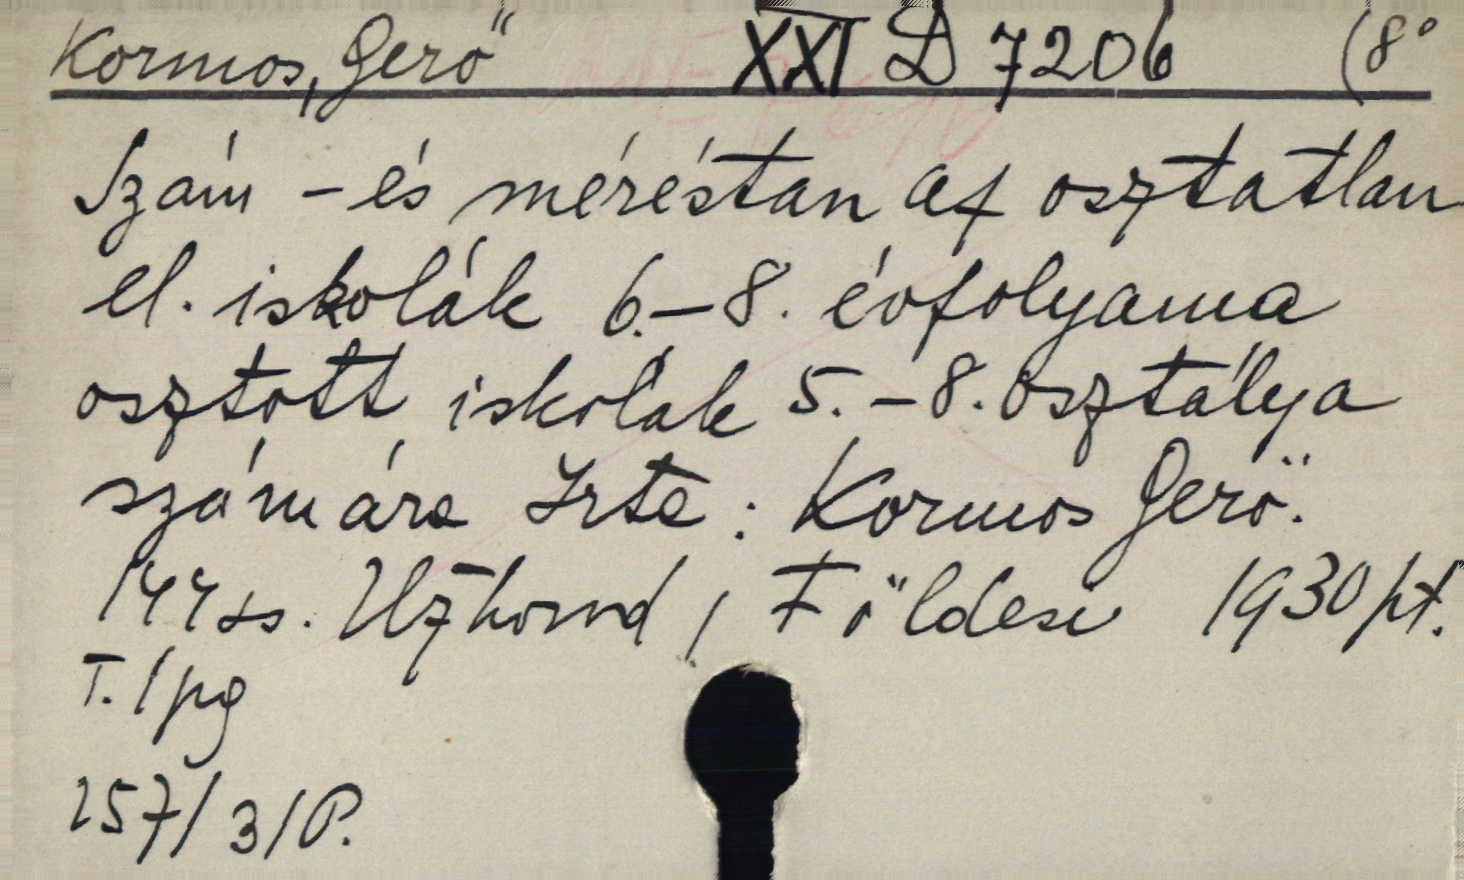 Kormos, Gerő XXI D 7206 (8°
Szám - és méréstan az osztatlan
el. iskolák 6.-8. évfolyama
osztott iskolák 5.-8. osztálya
számára Irta: Kormos Gerő.
144 ss. Užhorod, Földesi 1930 pt.
T. 1 pg
257/3/P.